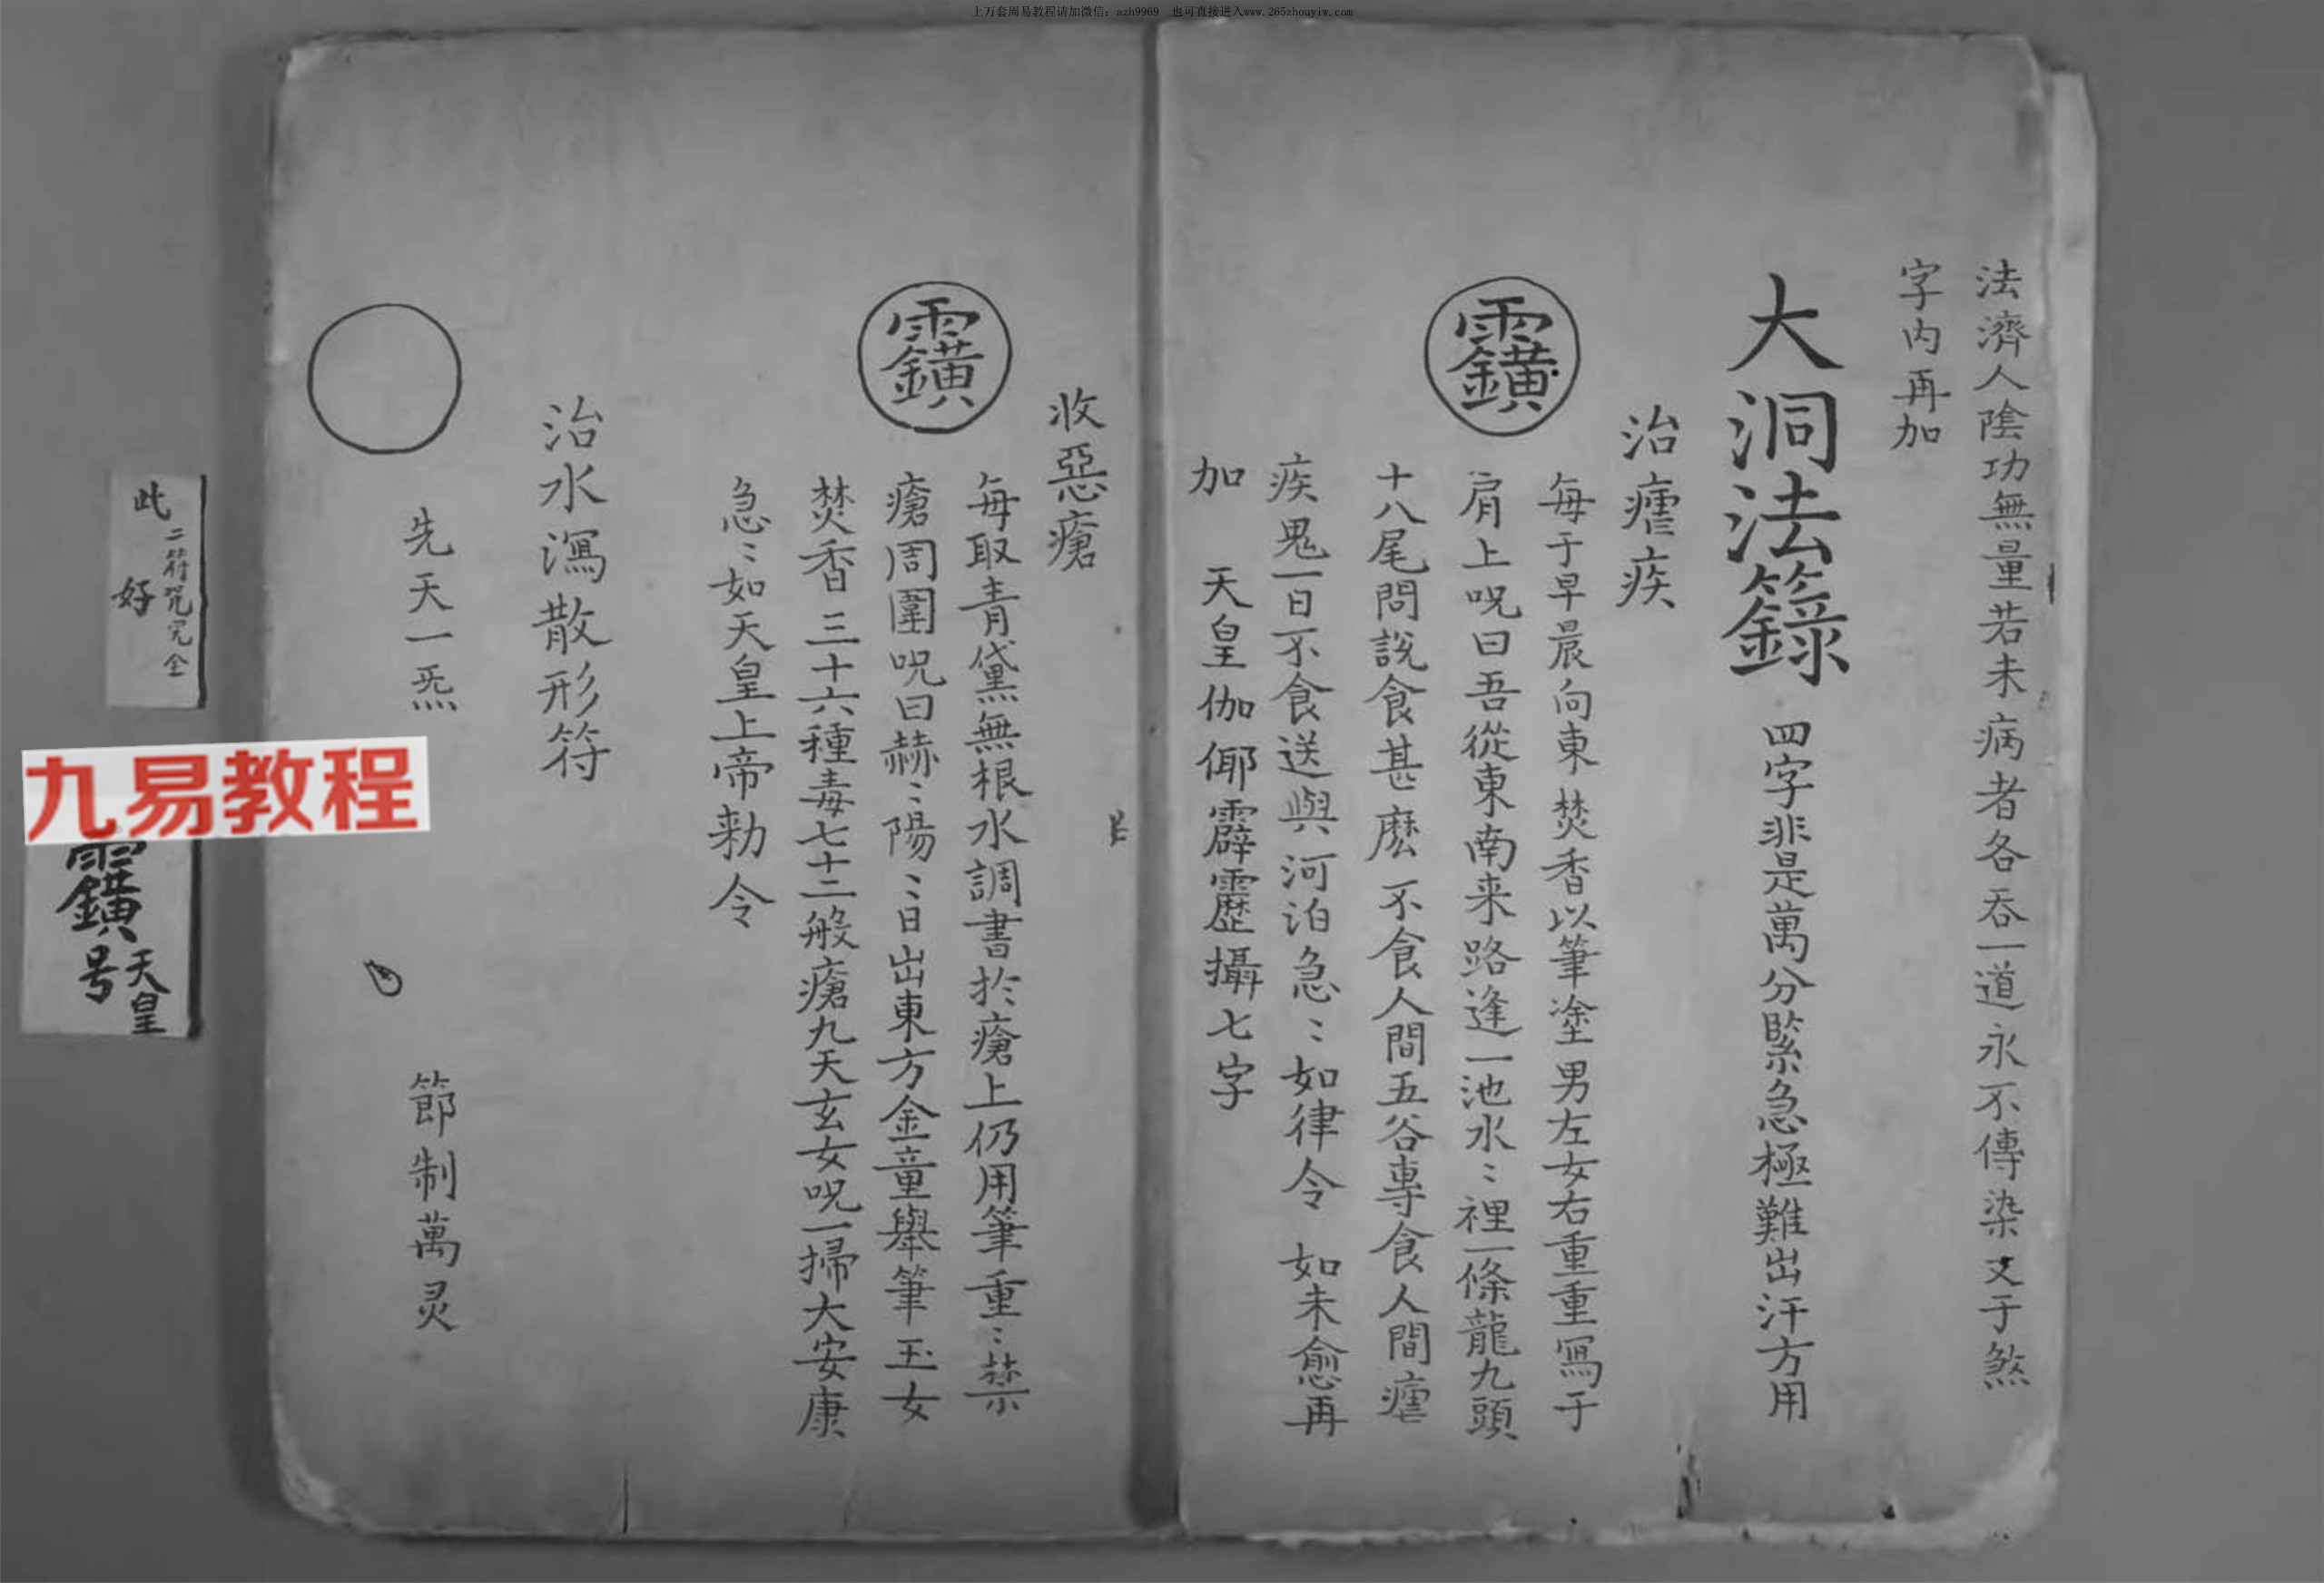 上万套周易教程请加微信：azh9969　也可直接进入www.265zhouyiw.com
法濟人陰功無量若未病者各吞一道永不傳染又于煞
字内再加
大洞法籙 四字非是萬分緊急極難出汗方用
治瘧疾
每于早晨向東焚香以筆塗男左女右重重寫于
肩上呪曰吾從東南来路逢一池水〻裡一條龍九頭
十八尾問說食甚麽不食人間五谷專食人間瘧
疾鬼一日不食送與河泊急〻如律令 如未愈再
加 天皇伽倻霹靂攝七字
收惡瘡
每取青黛無根水調書於瘡上仍用筆重〻禁
瘡周圍呪曰赫〻陽〻日出東方金童舉筆玉女
焚香三十六種毒七十二般瘡九天玄女呪一掃大安康
急〻如天皇上帝勅令
治水瀉散形符
先天一炁 節制萬灵
此二符咒完全
好
九易教程
天皇
号